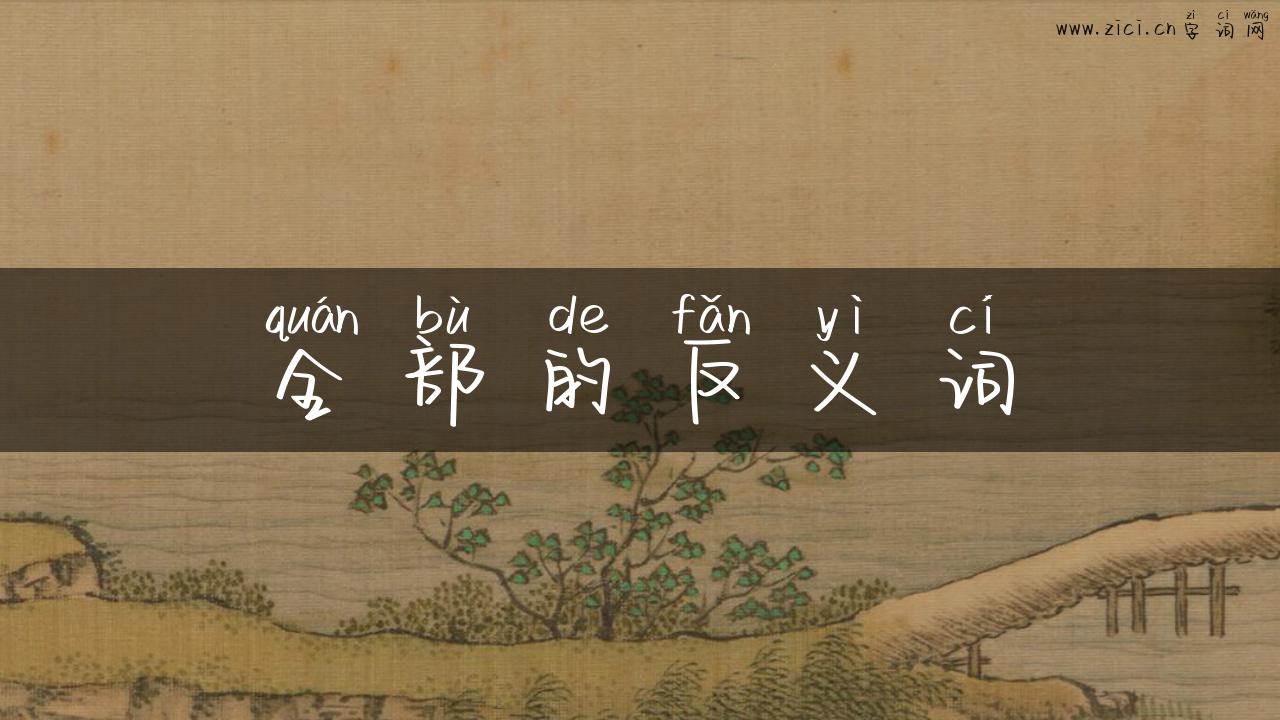 zì cí wǎng
www.zici.cn 字词网
quán bù de fǎn yì cí
全部的反义词